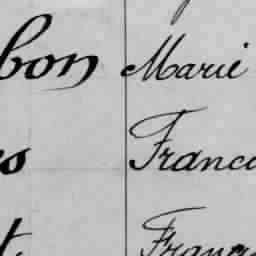 bon Marie
es Franco
t. Franç